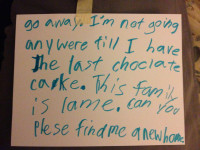 go away. I'm not going
anywere till I have
The last choclate
cake. This family
is lame. can you
Plese find me a new home